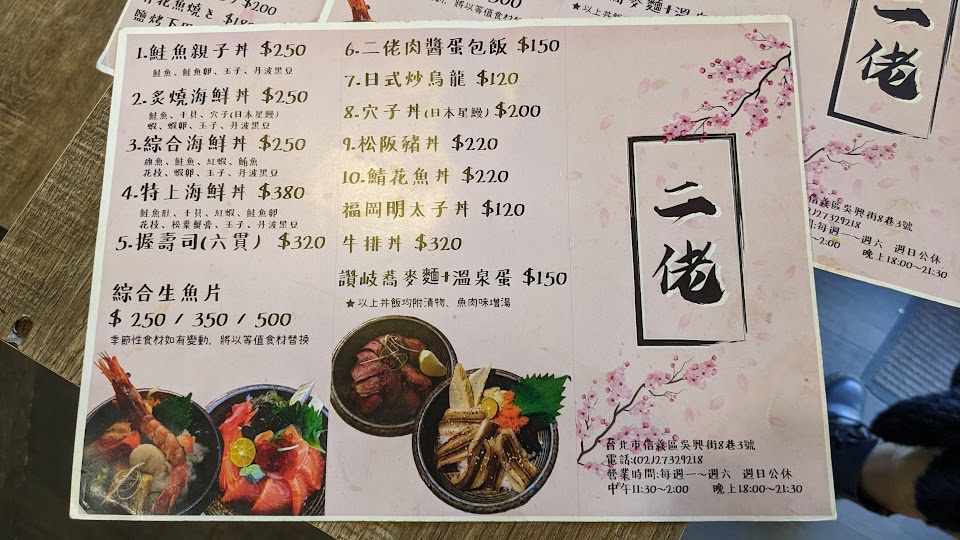 1.鮭魚親子丼 $250
鮭魚、鮭魚卵、玉子、丹波黑豆
2.炙燒海鮮丼 $250
鮭魚、干貝、穴子(日本星鰻)
蝦、蝦卵、玉子、丹波黑豆
3.綜合海鮮丼 $250
旗魚、鮭魚、紅蝦、鮪魚
花枝、蝦卵、玉子、丹波黑豆
4.特上海鮮丼 $380
鮭魚肚、干貝、紅蝦、鮭魚卵
花枝、松葉蟹膏、玉子、丹波黑豆
5.握壽司(六貫) $320
綜合生魚片
$ 250 / 350 / 500
季節性食材如有變動,將以等值食材替換
6.二佬肉醬蛋包飯 $150
7.日式炒烏龍 $120
8.穴子丼(日本星鰻) $200
9.松阪豬丼 $220
10.鯖花魚丼 $220
福岡明太子丼 $120
牛排丼 $320
讚岐蕎麥麵+溫泉蛋 $150
★以上丼飯均附漬物、魚肉味增湯
二佬
台北市信義區吳興街8巷3號
電話:(02)27329218
營業時間:每週一~週六 週日公休
中午11:30~2:00 晚上18:00~21:30
花魚燒き $200
鹽烤下
將以等值食材替
★以上丼
二佬
信義區吳興街8巷3號
02)27329218
間:每週一~週六 週日公休
~2:00 晚上18:00~21:30